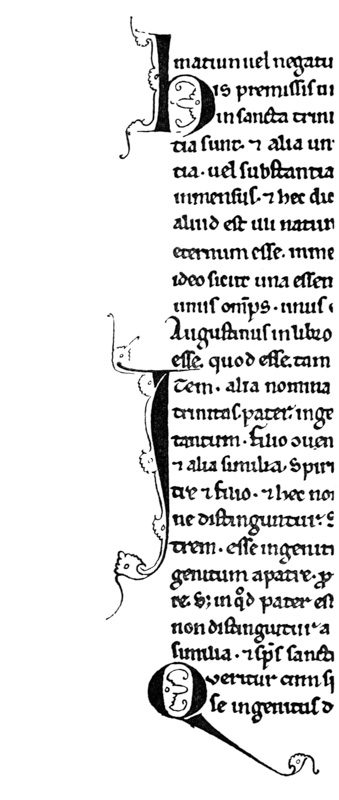 matiuu uel negatu
His premissis
in sancta trini
tia sunt. ⁊ alia un
tia. uel substantia
inmensus. ⁊ hec
aliud est
eternum esse. inme
ideo sicut una essen
unus om̅ps. unus
Augustinus in libro
esse. quod esse. tam
Item. alia nomina
trinitas. pater. inge
tantum. filio
⁊ alia similia. Spiri
tre ⁊ filio. ⁊ hec no
ne distinguntur. S
trem. esse ingenitu
genitum a patre. ꝓ
re. in qͦd pater est
non distinguitur a
similia. ⁊ sp̅s sanct
Queritur cum
se ingenitus d